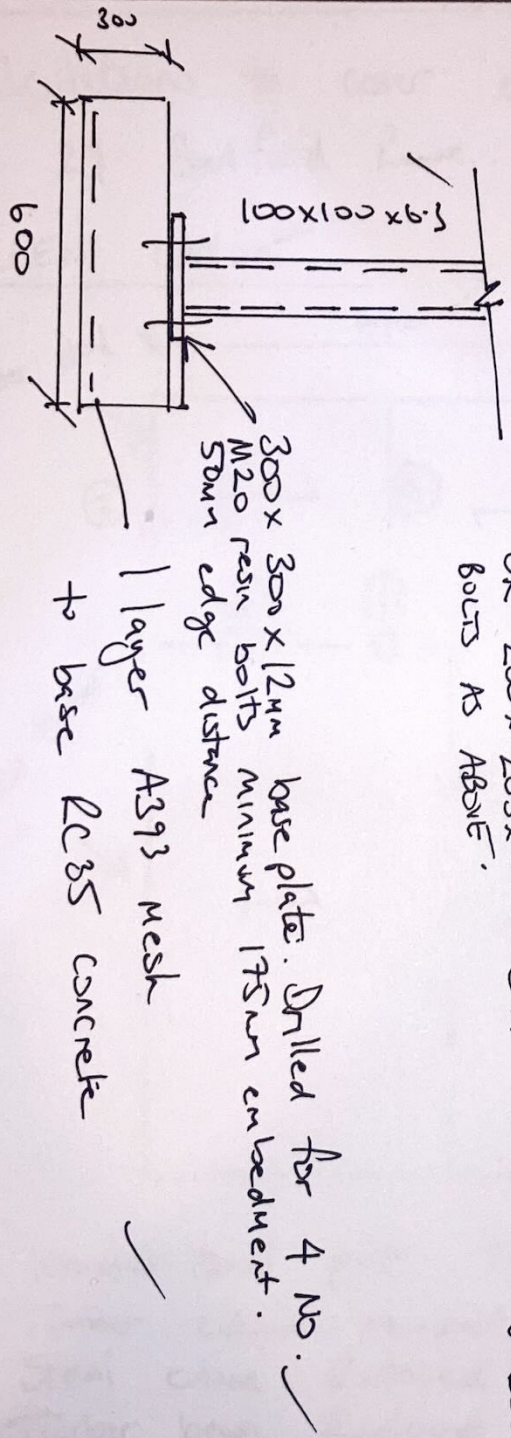 BOLTS AS ABOVE.
100x100x6.3
300
600
300 x 300 x 12mm base plate. Drilled for 4 No.
M20 resin bolts minimum 175mm embedment.
50mm edge distance
1 layer A393 mesh
to base RC35 concrete